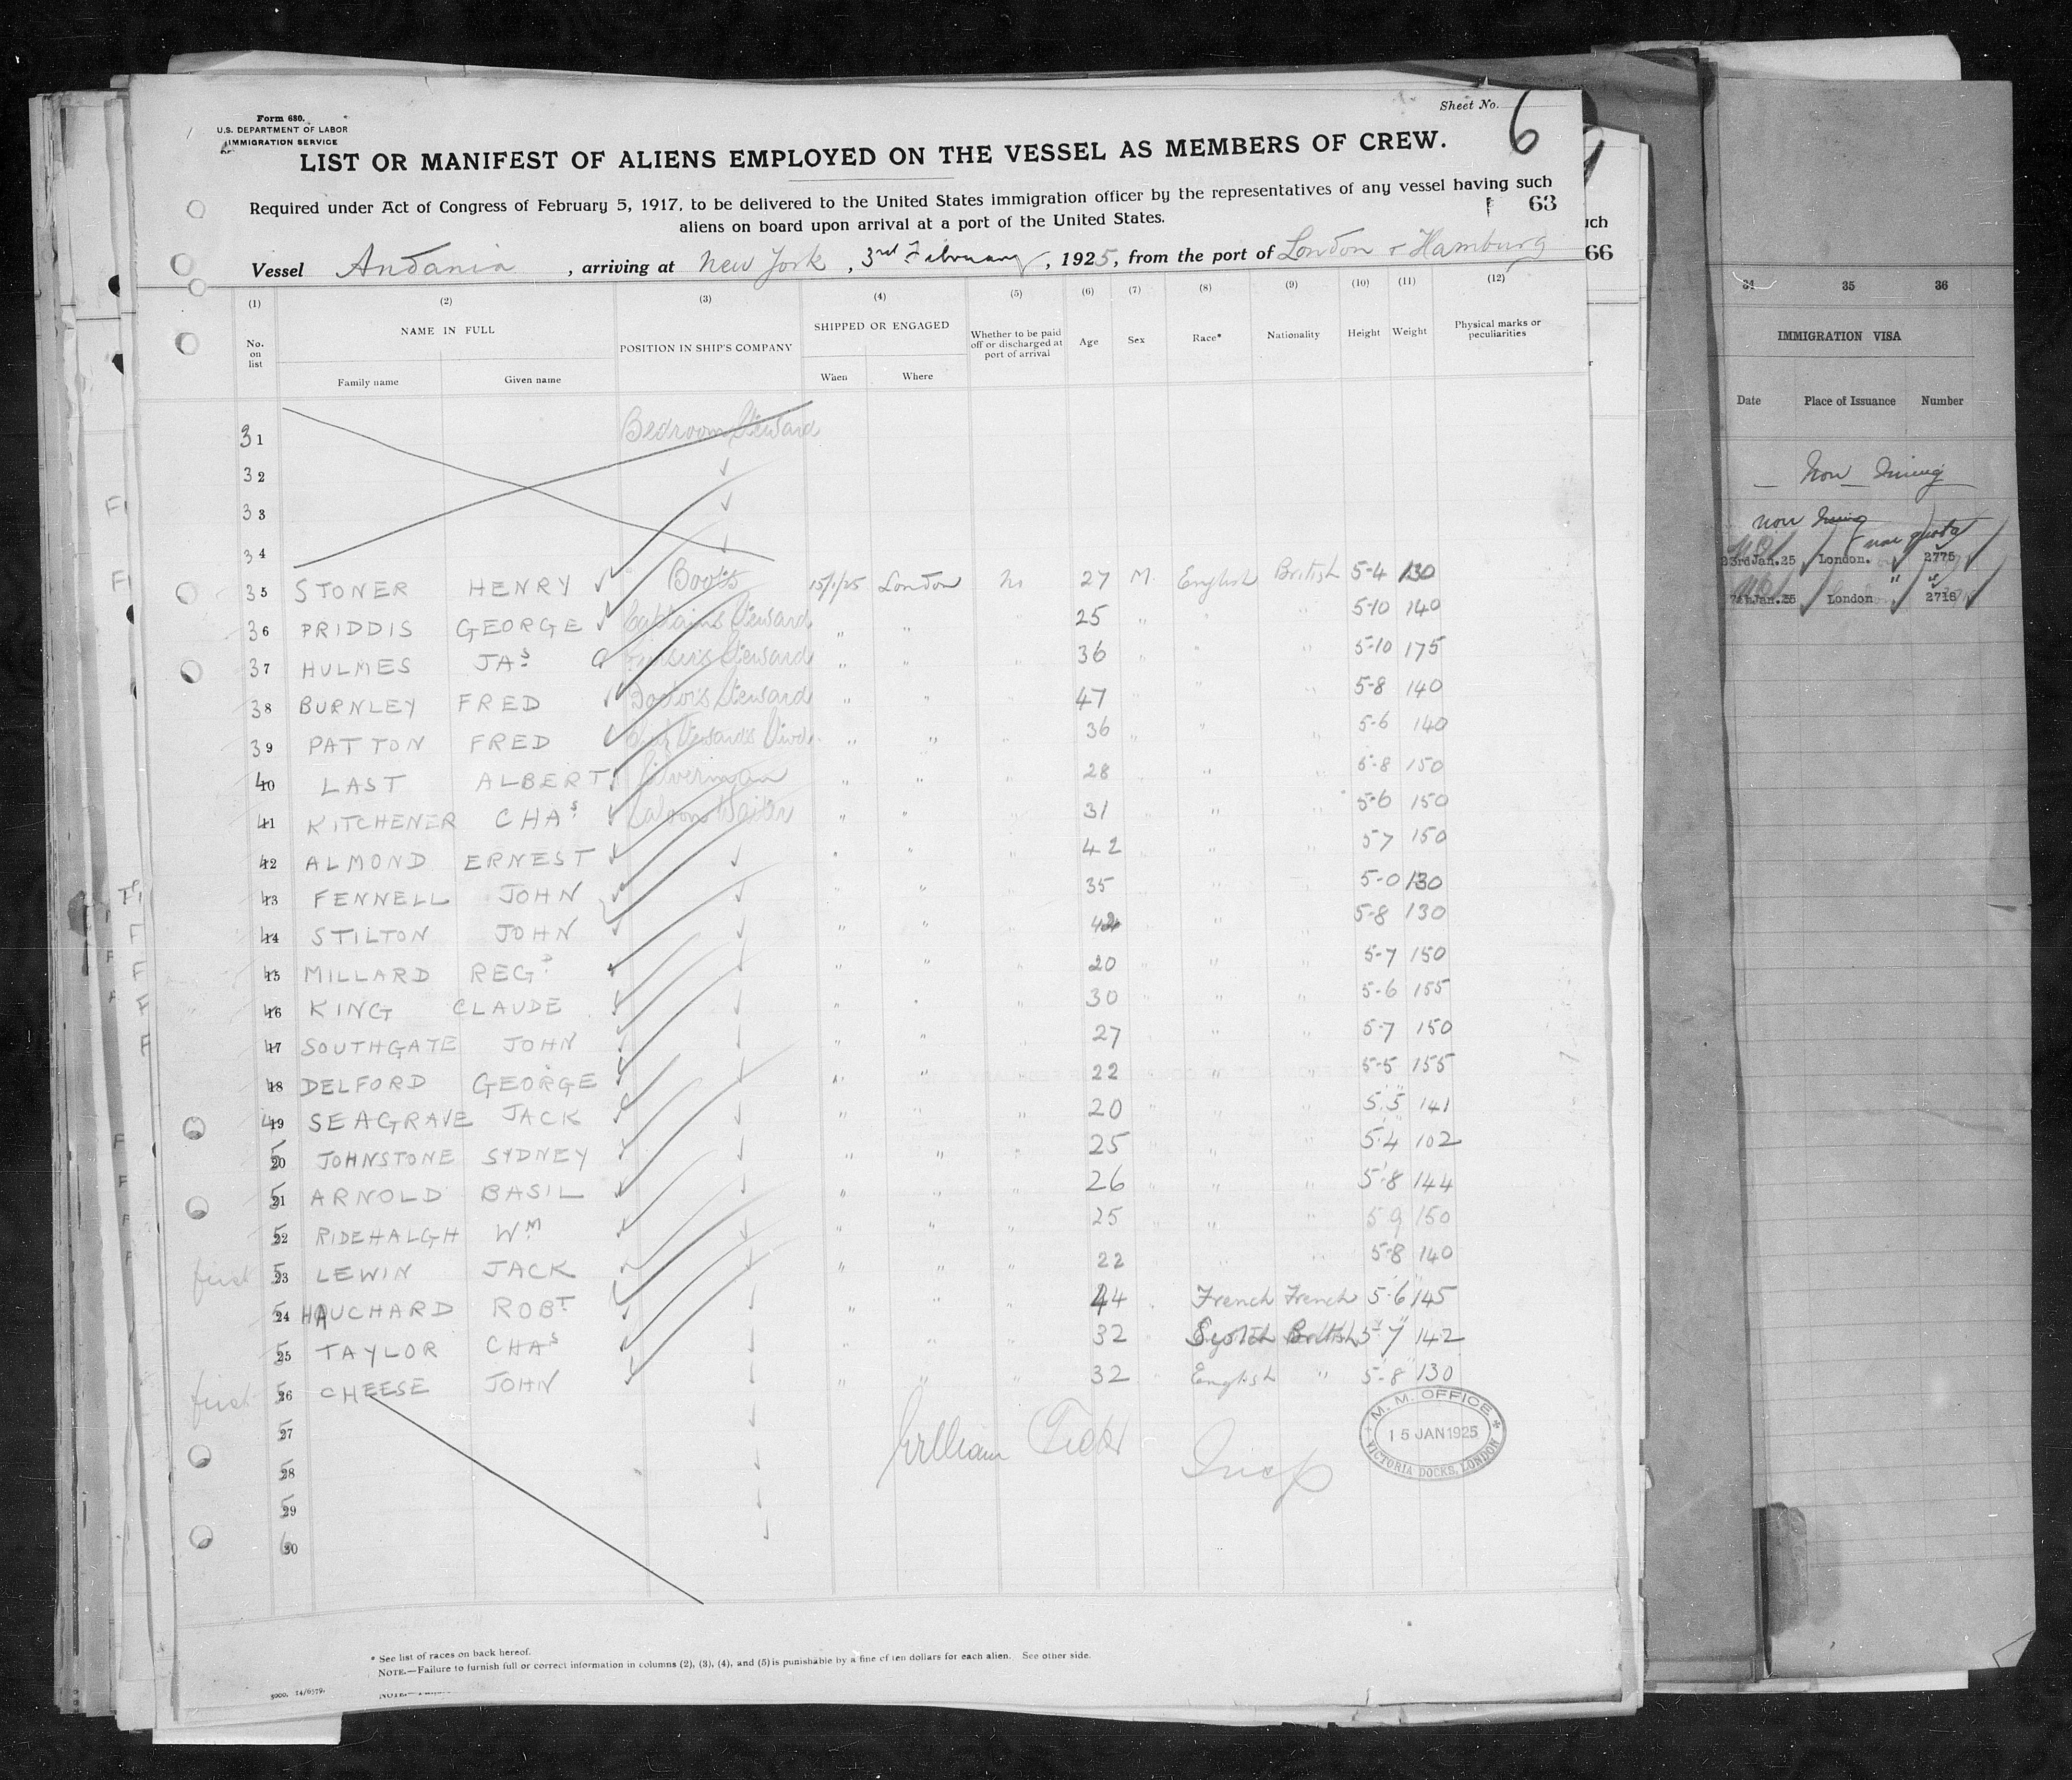 Form 680.
U.S. DEPARTMENT OF LABOR
IMMIGRATION SERVICE
Sheet No. 6
LIST OR MANIFEST OF ALIENS EMPLOYED ON THE VESSEL AS MEMBERS OF CREW.
Required under Act of Congress of February 5, 1917, to be delivered to the United States immigration officer by the representatives of any vessel having such
aliens on board upon arrival at a port of the United States.
63
Vessel Andania, arriving at New York, 3rd February, 1925, from the port of London & Hamburg
(1) (2) (3) (4) (5) (6) (7) (8) (9) (10) (11) (12)
No. on list NAME IN FULL POSITION IN SHIP'S COMPANY SHIPPED OR ENGAGED Whether to be paid off or discharged at port of arrival Age Sex Race* Nationality Height Weight Physical marks or peculiarities
Family name Given name When Where
31 Bedroom Steward
32
33
34
35 STONER HENRY Boots 15/1/25 London No 27 M English British 5-4 130
36 PRIDDIS GEORGE Captains Steward " " 25 " " " 5-10 140
37 HULMES JAS Pursers Steward " " " 36 " " " 5-10 175
38 BURNLEY FRED Doctors Steward " " 47 " " " 5-8 140
39 PATTON FRED " " " 36 " " " 5-6 140
40 LAST ALBERT Silverman " " " 28 " " 5-8 150
41 KITCHENER CHAS Saloon Waiter " " " 31 " " 5-6 150
42 ALMOND ERNEST " " " 42 " " 5 7 150
43 FENNELL JOHN " " " 35 " " 5-0 130
44 STILTON JOHN " " " " " 5-8 130
45 MILLARD REGD " " " 20 " " 5-7 150
46 KING CLAUDE " " " 30 " " 5-6 155
47 SOUTHGATE JOHN " " 27 " " 5-7 150
48 DELFORD GEORGE " " 22 " " 5-5 155
49 SEAGRAVE JACK " " " 20 " " 5.5 141
50 JOHNSTONE SYDNEY " " " 25 " " 5.4 102
51 ARNOLD BASIL " " " 26 " " 5.8 144
52 RIDEHALGH WM " " " 25 " " 5 9 150
first 53 LEWIN JACK " " " 22 " " 5-8 140
54 HAUCHARD ROBT " " " 44 French French 5.6 145
55 TAYLOR CHAS " " " 32 Scotch British 5 7 142
first 56 CHEESE JOHN " " " 32 English " 5-8 130
57
58
59
60
William
Insp
M. M. OFFICE
15 JAN 1925
VICTORIA DOCKS, LONDON
* See list of races on back hereof.
NOTE.—Failure to furnish full or correct information in columns (2), (3), (4), and (5) is punishable by a fine of ten dollars for each alien. See other side.
3000. 14/6579.
uch
66
34 35 36
IMMIGRATION VISA
Date Place of Issuance Number
Non Immig
non Immig
non quota
23rd Jan.25 London. 2775
Jan.25 London 2716